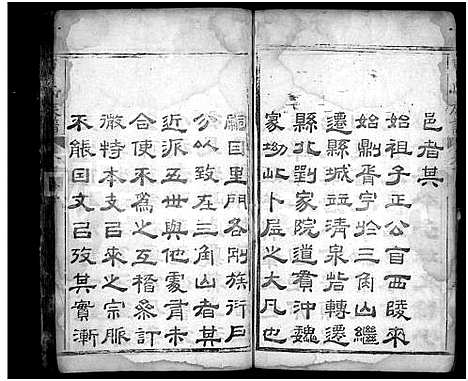 邑者其
始祖子正公自西陵來
始剏胥宇於三角山繼
遷縣城立清泉砦轉遷
縣北劉家院道貫沖魏
家坳此卜居之大凡也
嗣因里門各別族衍戶
分以致在三角山者其
近派五世與他處肅未
合使不為之互稽參訂
微特本支己來之宗脈
不能因文己孜其實漸